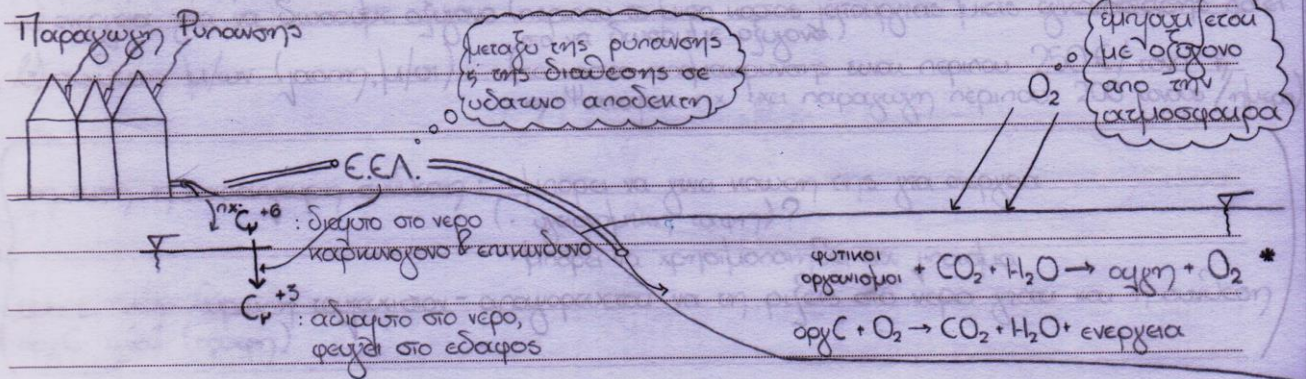 Παραγωγη Ρυπανσης
μεταξυ της ρυπανσης
ή της διαθεσης σε
υδατινο αποδεκτη
εμπλουτιζεται
με οξυγονο
απο την
ατμοσφαιρα
O₂
Ε.ΕΛ.
πχ. Cr⁺⁶ : διαλυτο στο νερο
καρκινογονο & επικινδυνο
Cr⁺³ : αδιαλυτο στο νερο,
φευγει στο εδαφος
φυτικοι οργανισμοι + CO₂ + H₂O → αλγη + O₂ *
οργC + O₂ → CO₂ + H₂O + ενεργεια